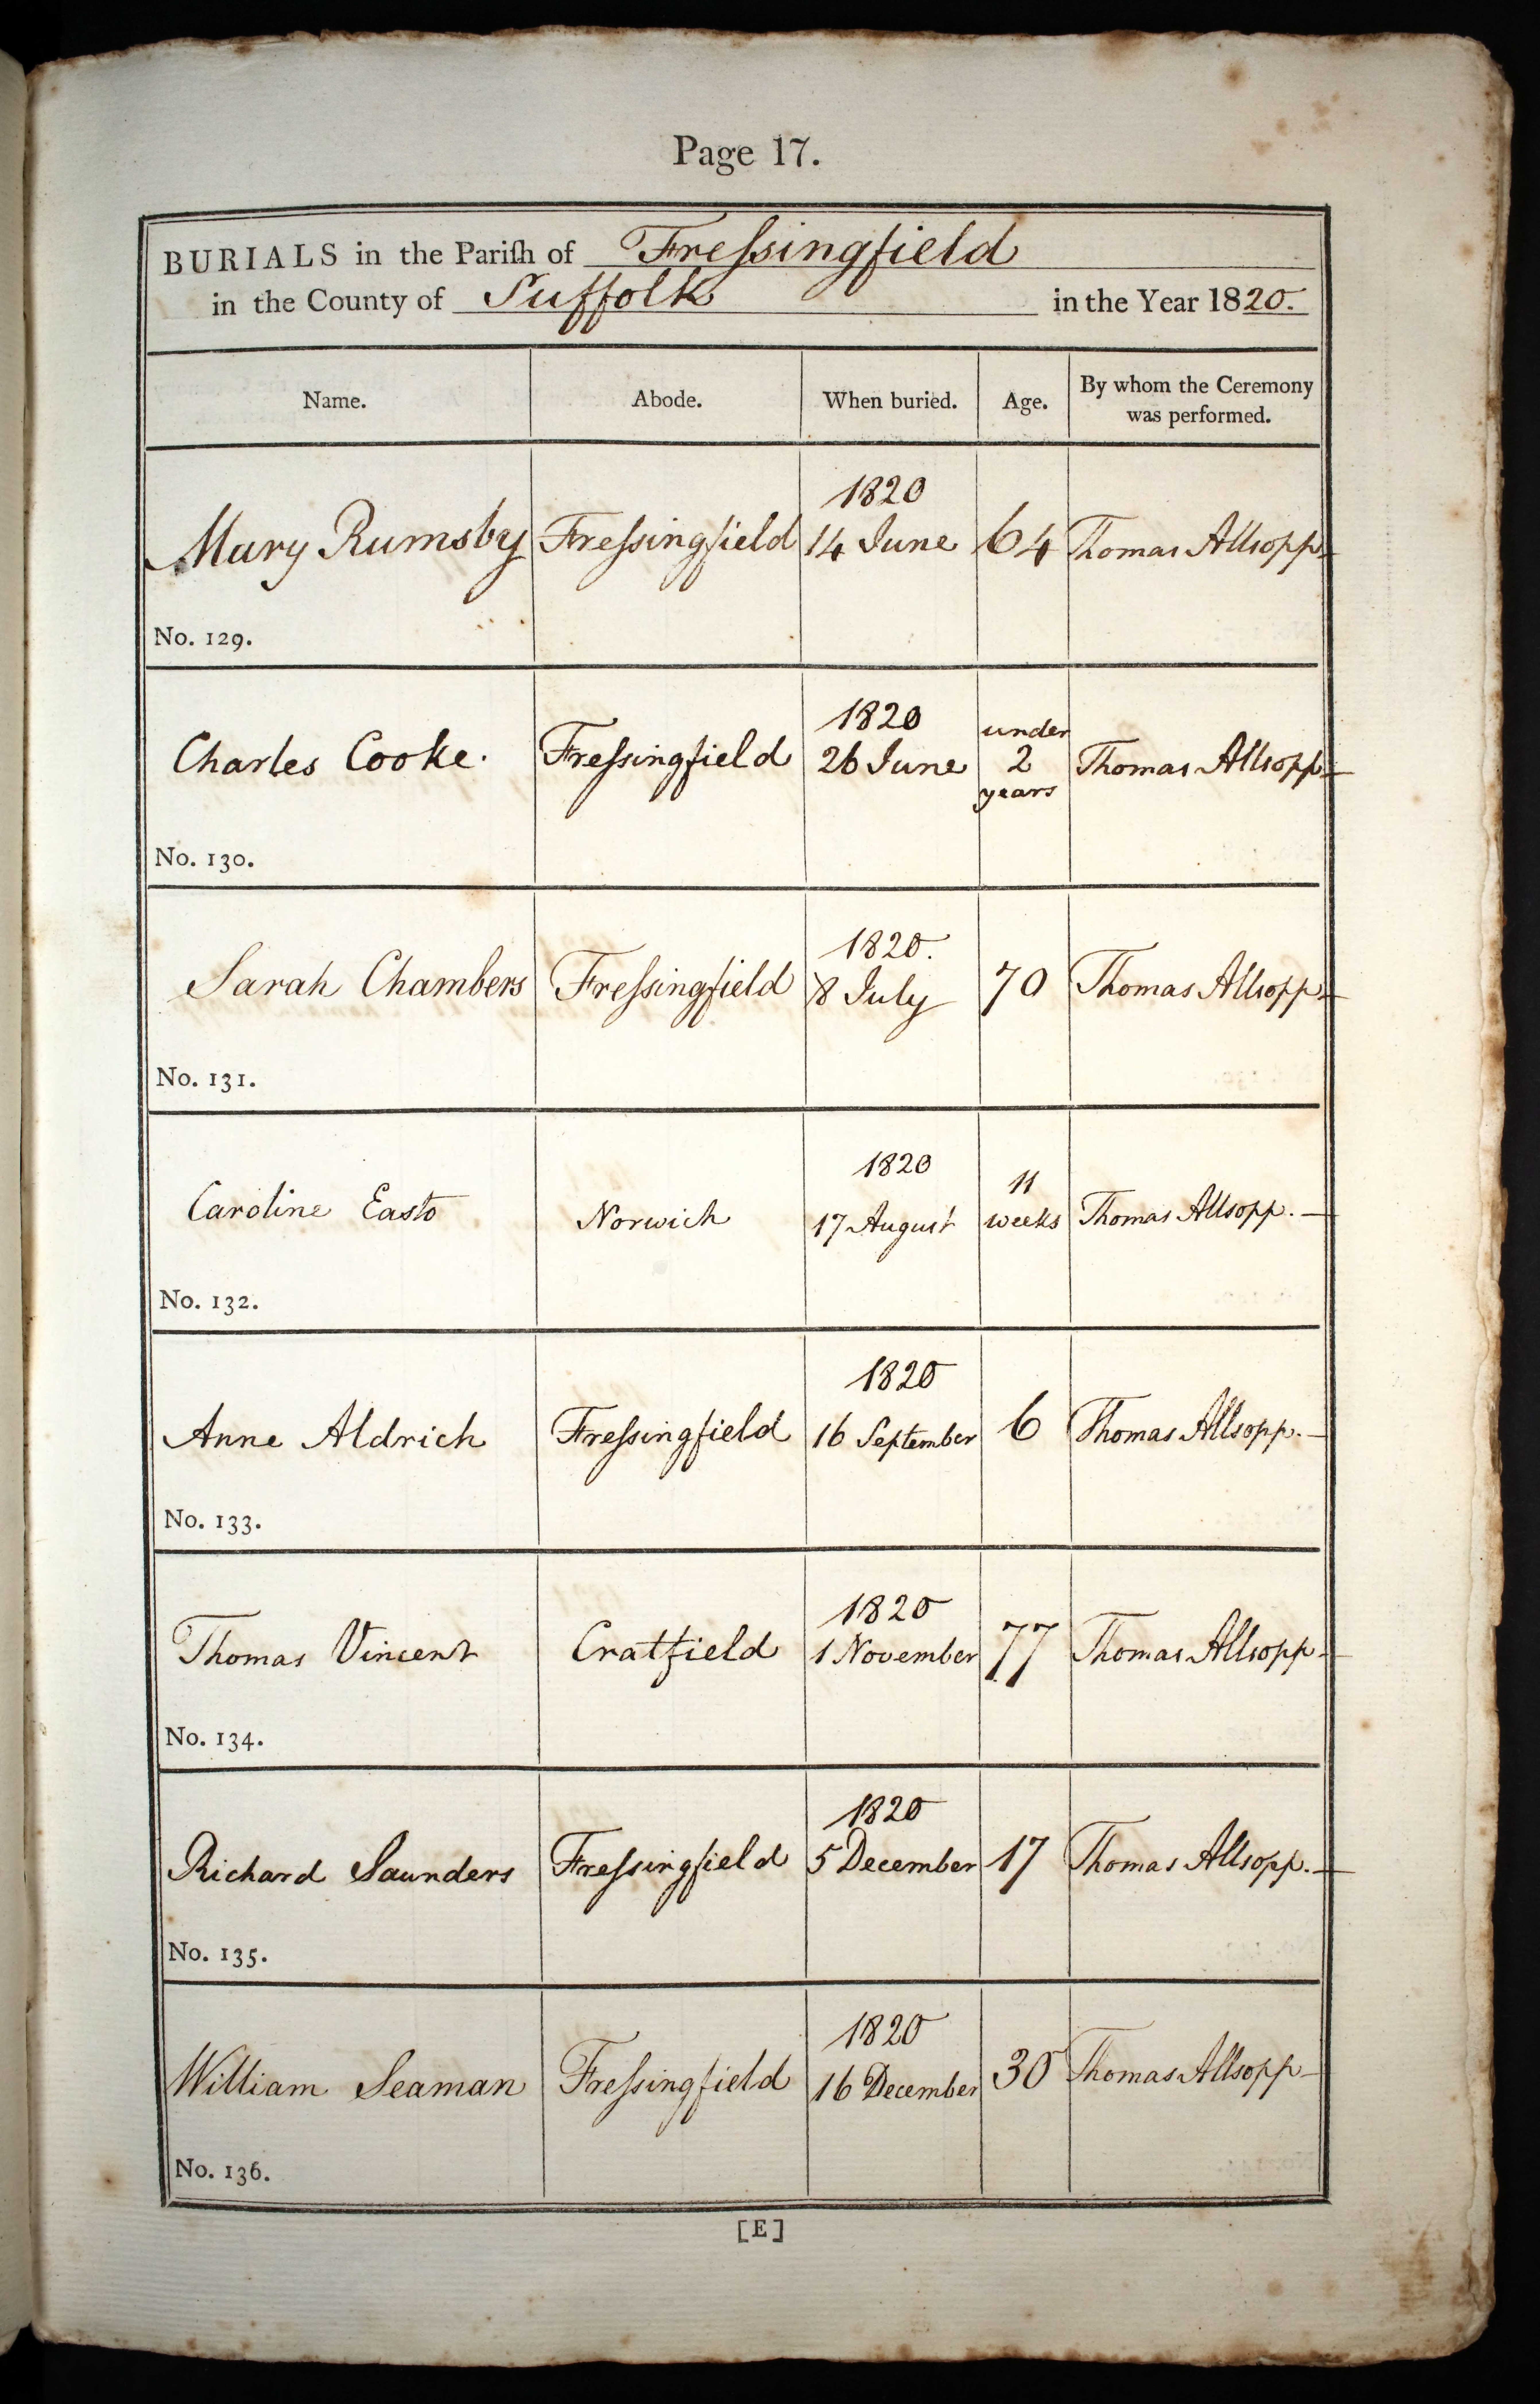 Page 17.
BURIALS in the Pariſh of Freſsingfield
in the County of Suffolk in the Year 1820.
Name. Abode. When buried. Age. By whom the Ceremony
was performed.
1820
Mary Rumsby Freſsingfield 14 June 64 Thomas Allsopp
No. 129.
1820
under
Charles Cooke. Freſsingfield 26 June 2 Thomas Allsopp
years
No. 130.
1820.
Sarah Chambers Freſsingfield 8 July 70 Thomas Allsopp
No. 131.
1820
11
Caroline Easto Norwich 17 August weeks Thomas Allsopp. —
No. 132.
1820
Anne Aldrich Freſsingfield 16 September 6 Thomas Allsopp. —
No. 133.
1820
Thomas Vincent Cratfield 1 November 77 Thomas Allsopp —
No. 134.
1820
Richard Saunders Freſsingfield 5 December 17 Thomas Allsopp. —
No. 135.
1820
William Seaman Freſsingfield 16 December 30 Thomas Allsopp —
No. 136.
[E]